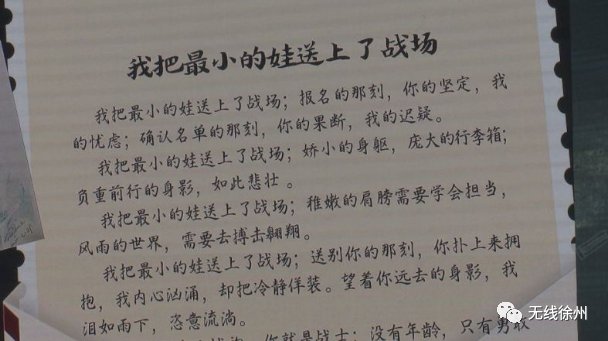 我把最小的娃送上了战场
我把最小的娃送上了战场；报名的那刻，你的坚定，我
的忧虑；确认名单的那刻，你的果断，我的迟疑。
我把最小的娃送上了战场；娇小的身躯，庞大的行李箱；
负重前行的身影，如此悲壮。
我把最小的娃送上了战场；稚嫩的肩膀需要学会担当，
风雨的世界，需要去搏击翱翔。
我把最小的娃送上了战场；送别你的那刻，你扑上来拥
抱，我内心汹涌，却把冷静佯装。望着你远去的身影，我
泪如雨下，恣意流淌。
你就是战士；没有年龄，只有勇敢
无线徐州